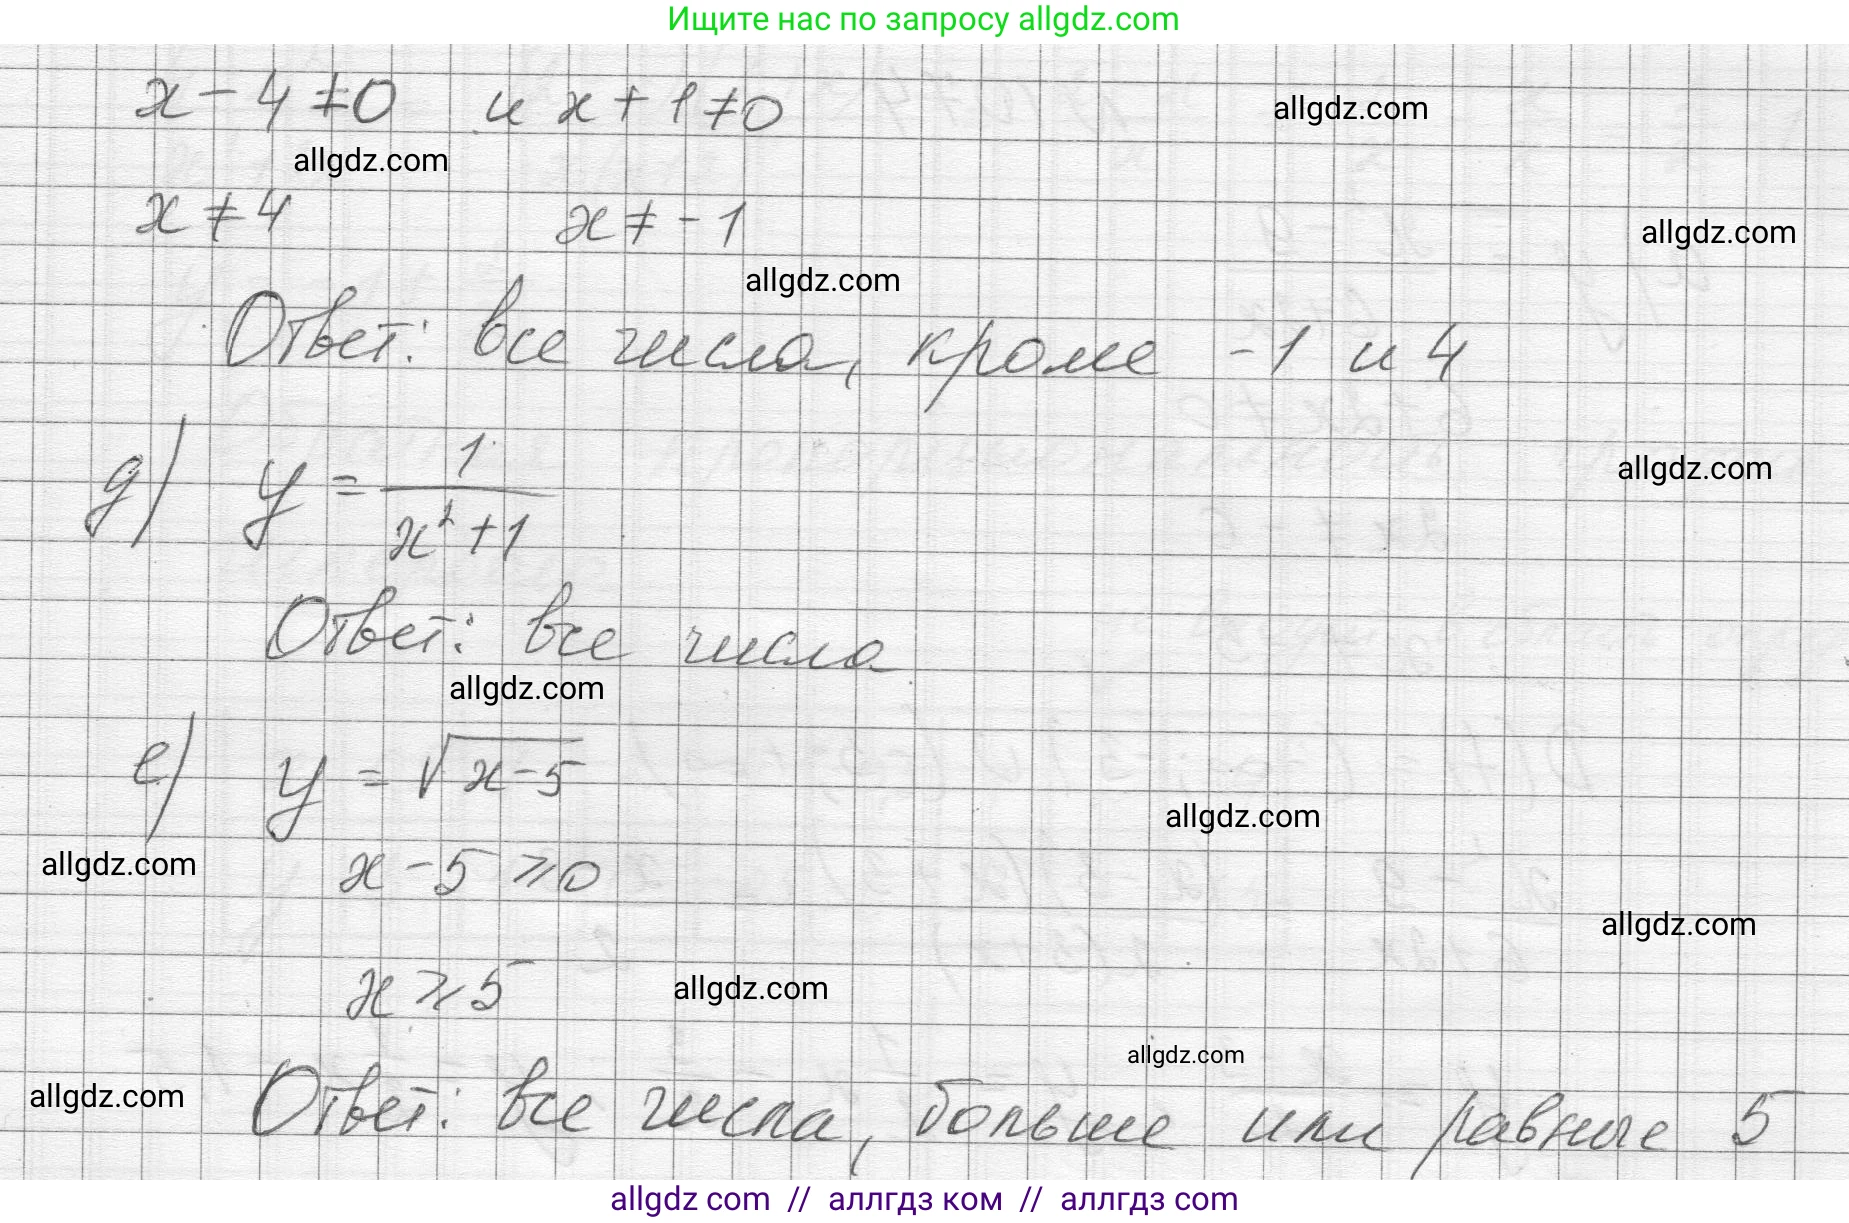 Ищите нас по запросу allgdz.com
x - 4 ≠ 0 и x + 1 ≠ 0
allgdz.com
allgdz.com
x ≠ 4 x ≠ -1
allgdz.com
allgdz.com
Ответ: все числа, кроме -1 и 4
д) y = 1/(x² + 1)
allgdz.com
Ответ: все числа
allgdz.com
е) y = √(x - 5)
allgdz.com
x - 5 ⩾ 0
allgdz.com
allgdz.com
x ⩾ 5
allgdz.com
allgdz.com
allgdz.com
Ответ: все числа, больше или равные 5
allgdz com // аллгдз ком // аллгдз com